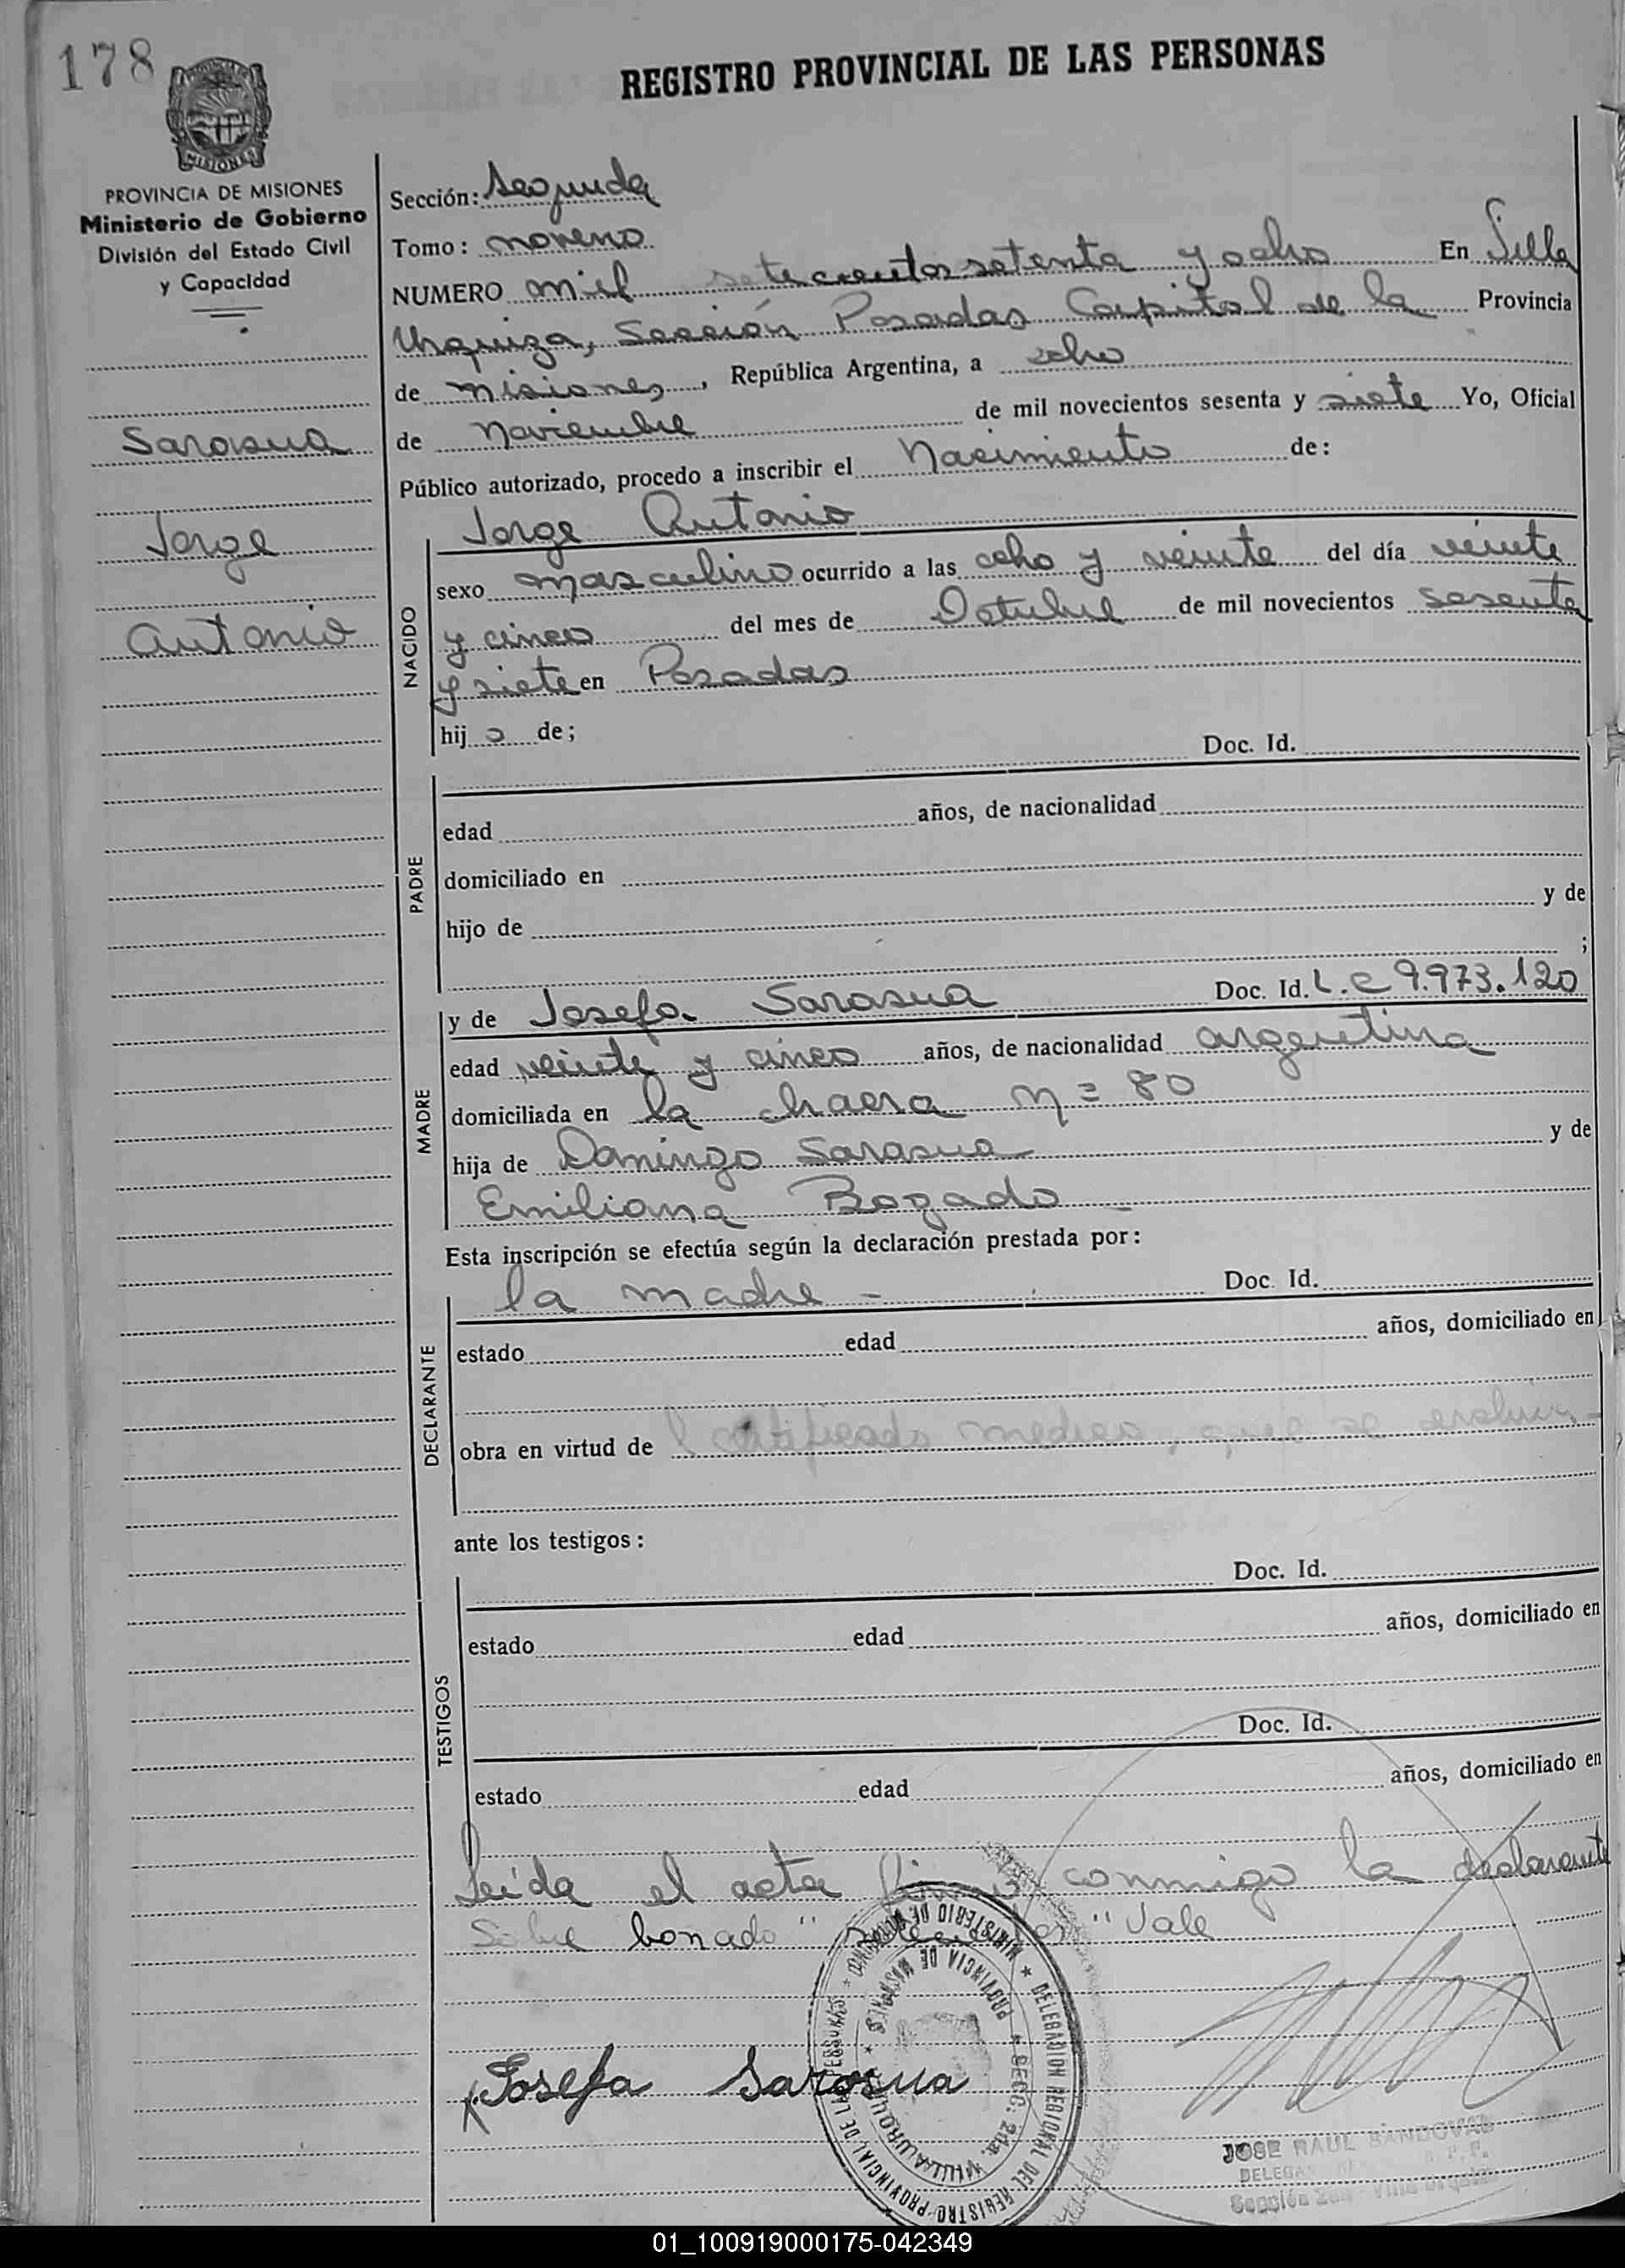 178
REGISTRO PROVINCIAL DE LAS PERSONAS
MISIONES
PROVINCIA DE MISIONES
Ministerio de Gobierno
División del Estado Civil
y Capacidad
Sarasua
Jorge
Antonio
Sección: Segunda
Tomo: noveno
NUMERO mil setecientos setenta y ocho En Villa
Urquiza, Sección Posadas Capital de la Provincia
de Misiones, República Argentina, a ocho
de Noviembre de mil novecientos sesenta y siete Yo, Oficial
Público autorizado, procedo a inscribir el Nacimiento de:
NACIDO
Jorge Antonio
sexo masculino ocurrido a las ocho y veinte del día veinte
y cinco del mes de Octubre de mil novecientos sesenta
y siete en Posadas
hij o de;
PADRE
Doc. Id.
edad años, de nacionalidad
domiciliado en
hijo de y de
;
MADRE
y de Josefa Sarasua Doc. Id. L.C 9.973.120
edad veinte y cinco años, de nacionalidad argentina
domiciliada en la chacra n= 80
hija de Domingo Sarasua y de
Emiliana Bogado
Esta inscripción se efectúa según la declaración prestada por:
DECLARANTE
la madre - Doc. Id.
estado edad años, domiciliado en
obra en virtud de l certificado medico, que se archiva
ante los testigos:
TESTIGOS
Doc. Id.
estado edad años, domiciliado en
Doc. Id.
estado edad años, domiciliado en
Leída el acta firma conmigo la declarante
Sobre borrado "setecientos" Vale
Josefa Sarasua
MINISTERIO DE GOBIERNO * DELEGACION REGIONAL DEL REGISTRO PROVINCIAL DE LAS PERSONAS *
PROVINCIA DE MISIONES * SECC. 2da. VILLA URQUIZA *
JOSE RAUL SANDOVAL
Sección 2da - Villa Urquiza
01_100919000175-042349